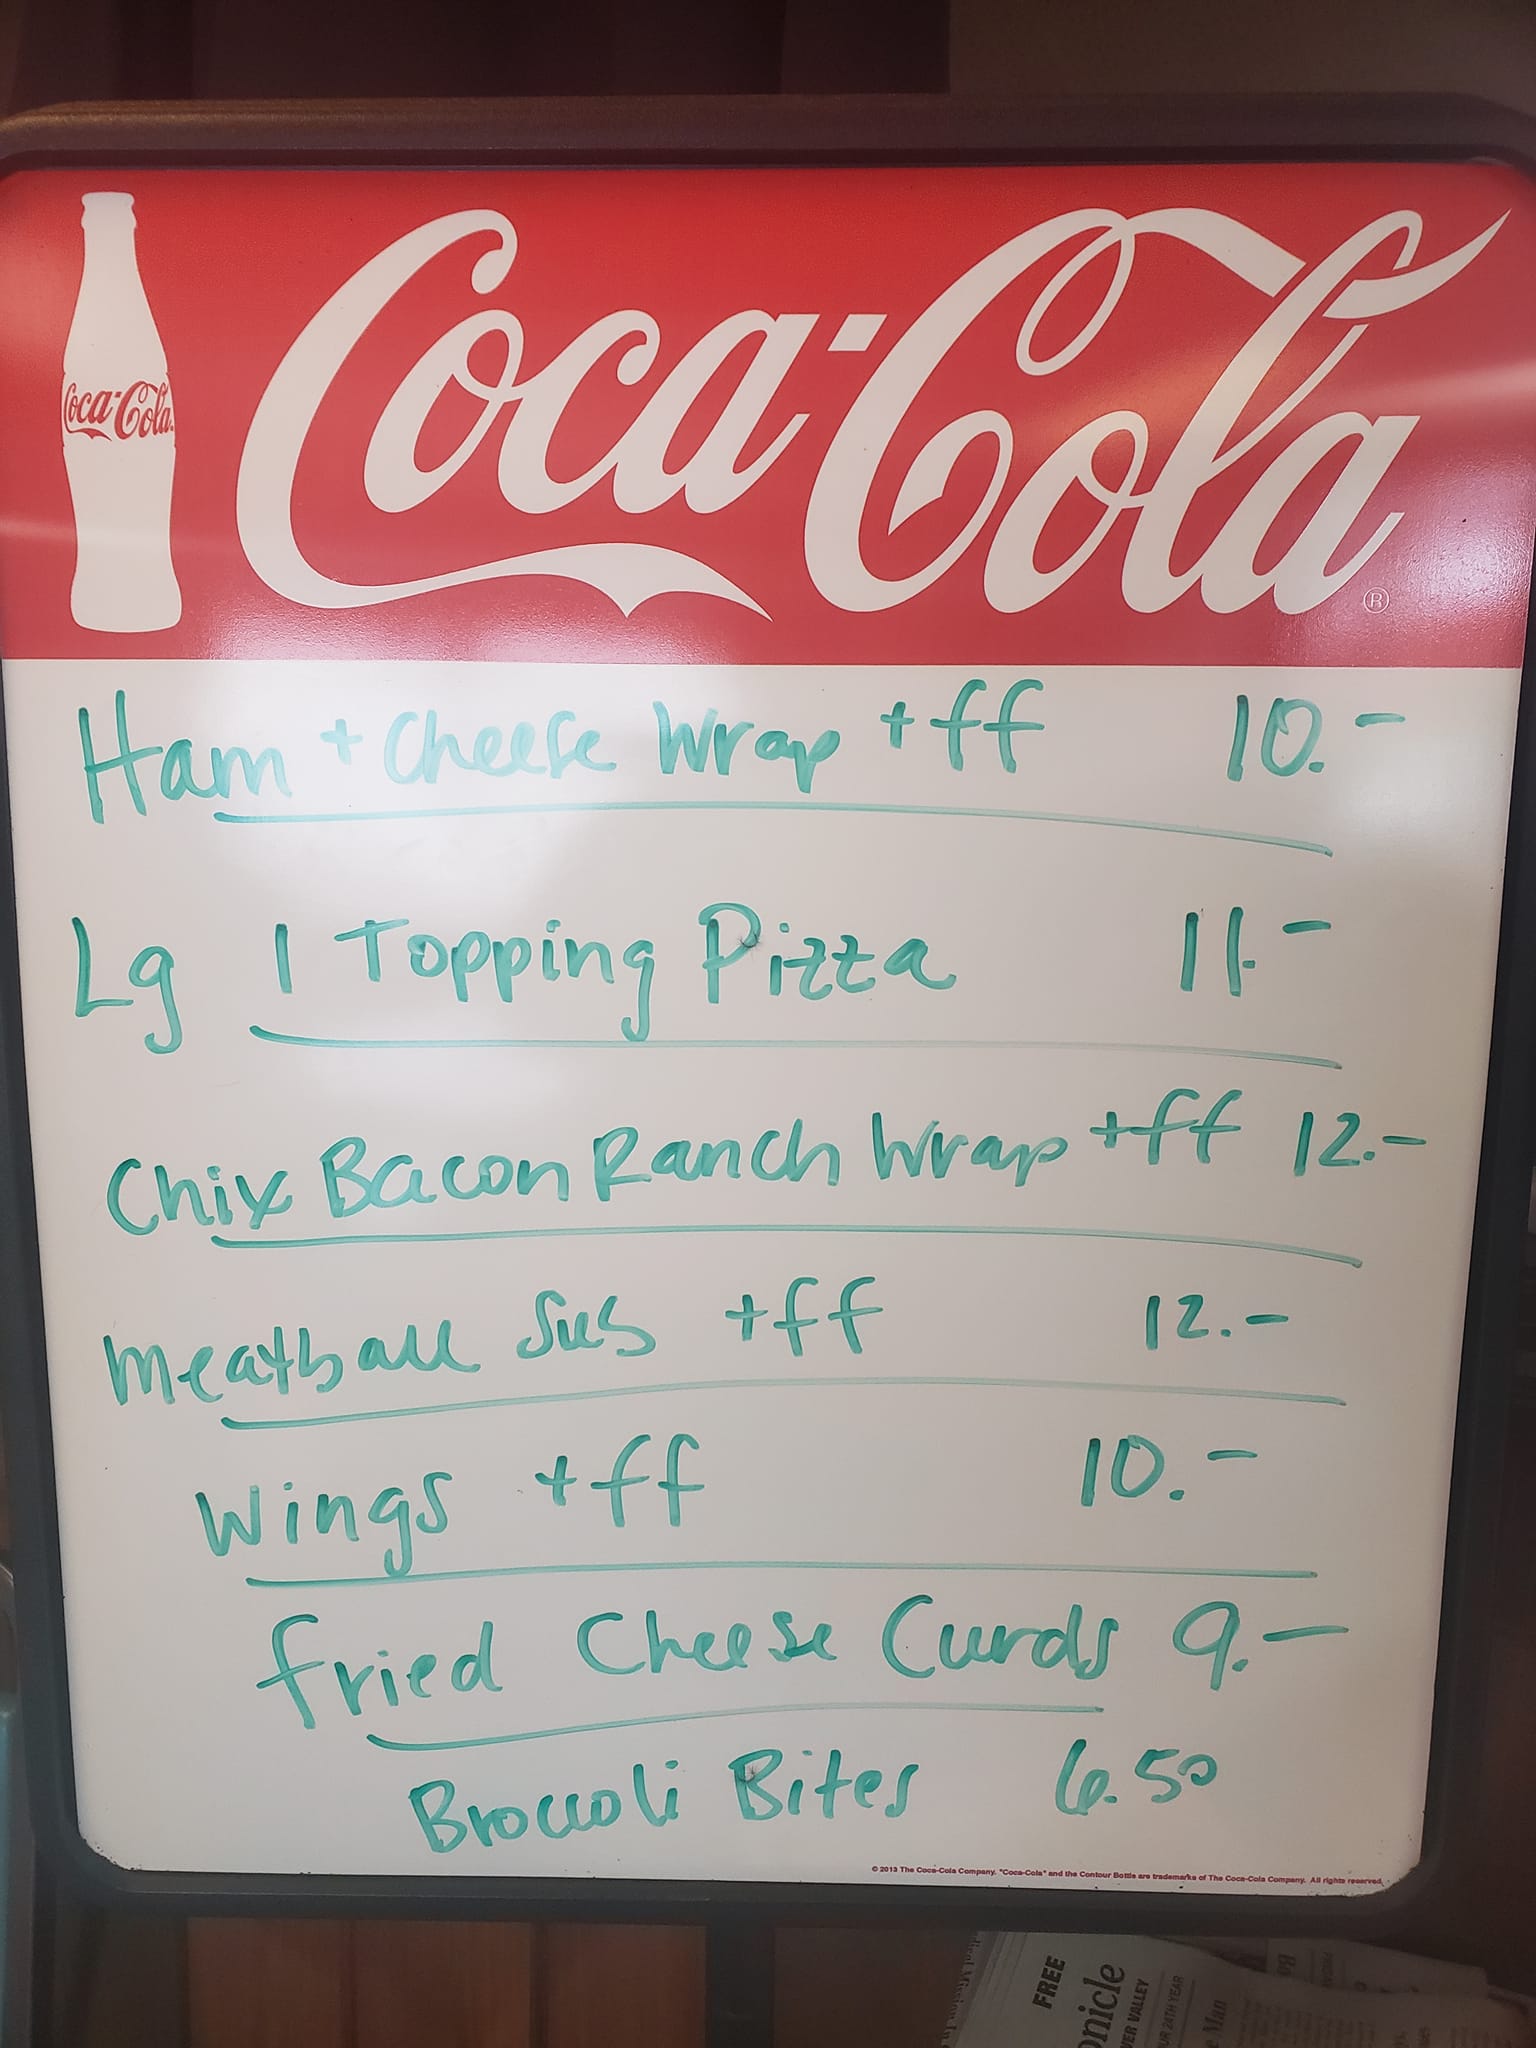 Coca-Cola
Coca-Cola®
Ham + Cheese Wrap + ff 10.-
Lg 1 Topping Pizza 11.-
Chix Bacon Ranch Wrap + ff 12.-
Meatball Sub + ff 12.-
Wings + ff 10.-
Fried Cheese Curds 9.-
Broccoli Bites 6.50
© 2013 The Coca-Cola Company. "Coca-Cola" and the Contour Bottle are trademarks of The Coca-Cola Company. All rights reserved.
FREE
onicle
VER VALLEY
UR 24TH YEAR
Man